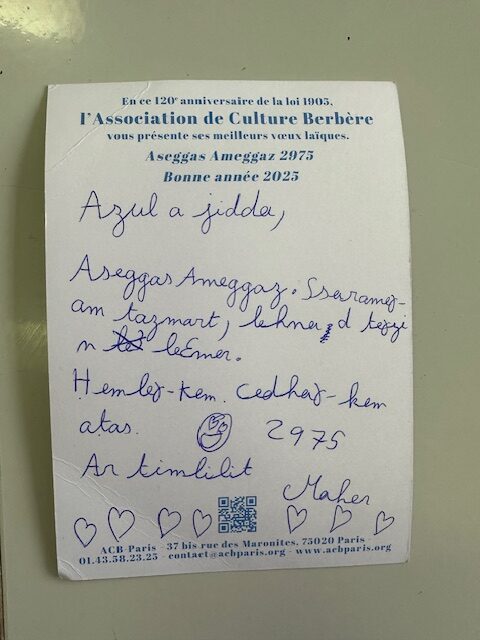 En ce 120e anniversaire de la loi 1905,
l'Association de Culture Berbère
vous présente ses meilleurs vœux laïques.
Aseggas Ameggaz 2975
Bonne année 2025
Azul a jidda,
Aseggas Ameggaz. Ssarameɣ-
am tazmart, lehna, d teɣzi
n leɛmer.
Ḥemleɣ-kem. Cedhaɣ-kem
atas. 2975
Ar timlilit
Maher
ACB-Paris - 37 bis rue des Maronites, 75020 Paris -
01.43.58.23.25 - contact@acbparis.org - www.acbparis.org